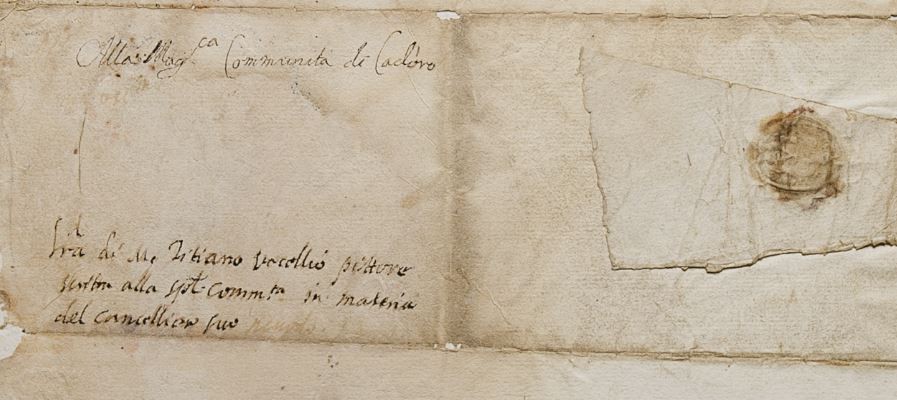 Alla Mag.ca Communità di Cadoro
L.ra di M. Titiano Vecellio pittore
scritta alla Sp.l Comm.ta in materia
del Cancellier suo